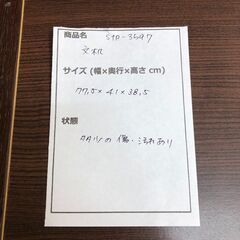 商品名 STD-3597
文机
サイズ (幅×奥行×高さ cm)
77.5×41×38.5
状態
多少の傷・汚れあり